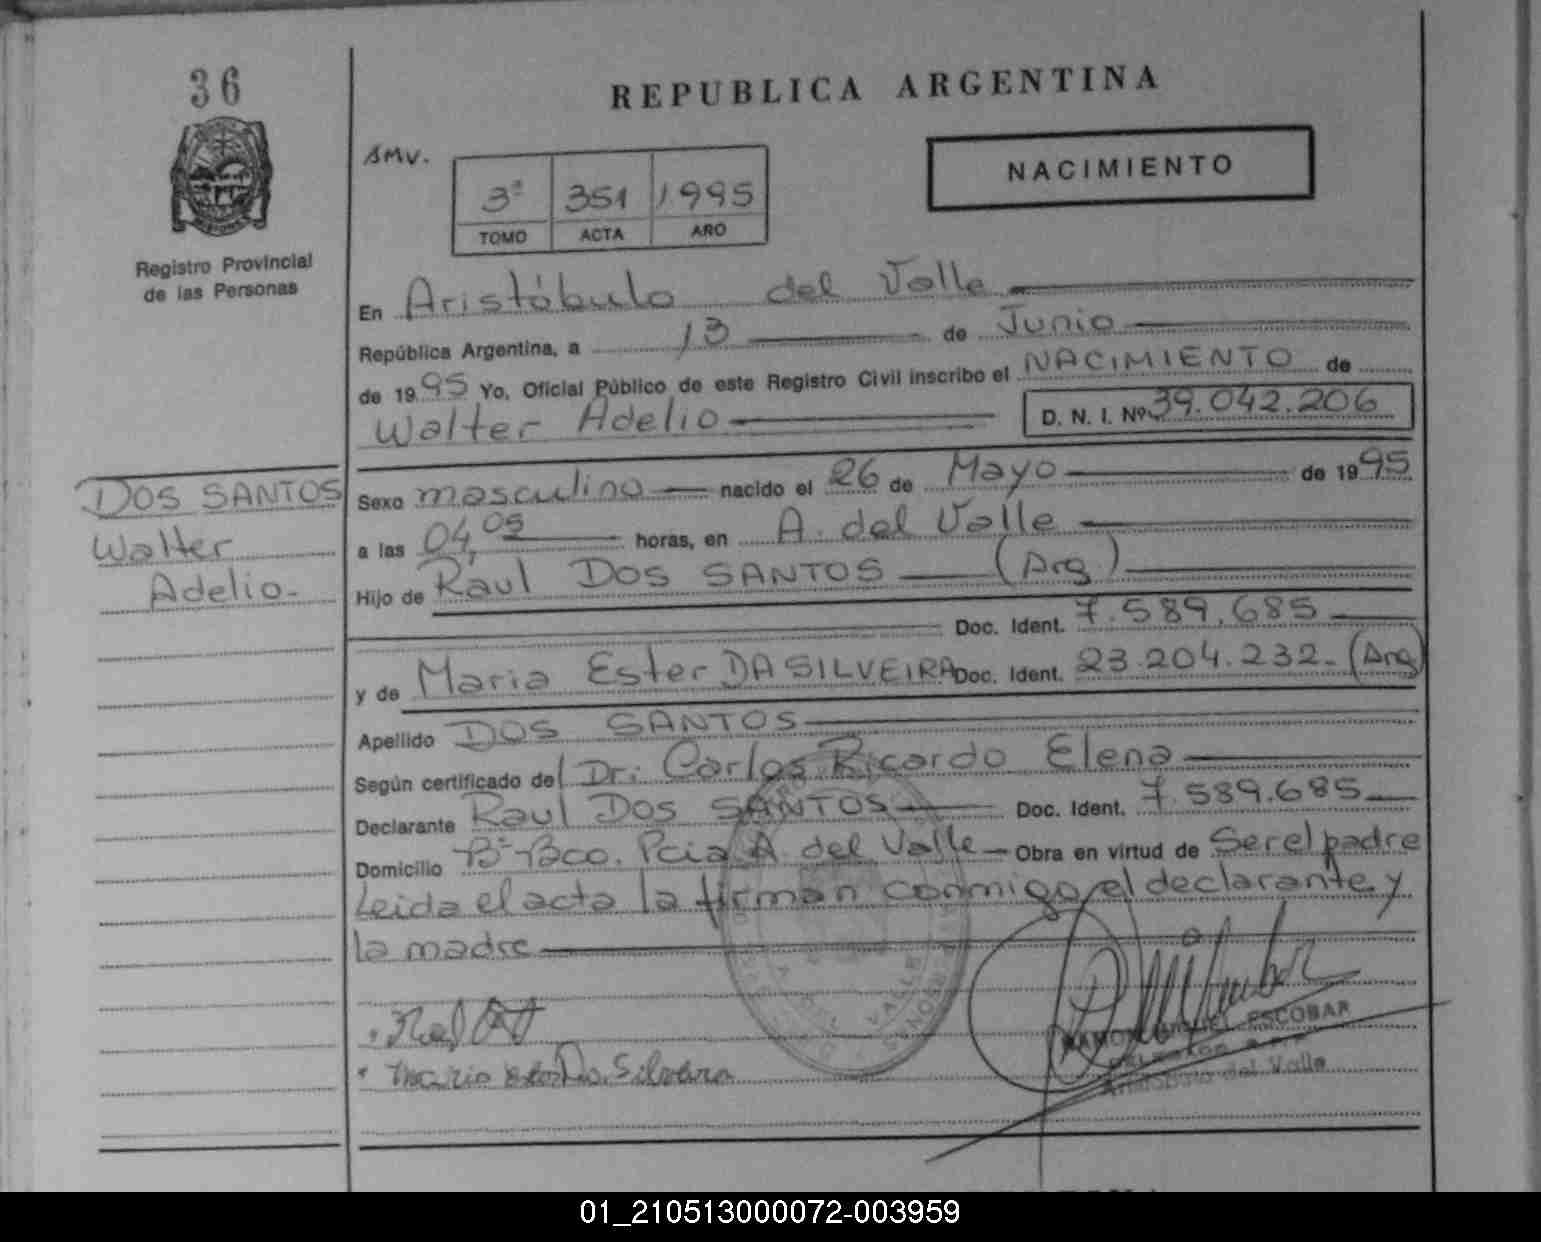 36
REPUBLICA ARGENTINA
NACIMIENTO
3º 351 1995
TOMO ACTA AÑO
Registro Provincial
de las Personas
En Aristóbulo del Valle
República Argentina, a 13 de Junio
de 1995 Yo, Oficial Público de este Registro Civil inscribo el NACIMIENTO de
Walter Adelio D. N. I. Nº 39.042.206
DOS SANTOS
Walter
Adelio.
Sexo masculino nacido el 26 de Mayo de 1995
a las 04,05 horas, en A. del Valle
Hijo de Raul DOS SANTOS (Arg)
Doc. Ident. 7.589.685
y de Maria Ester DA SILVEIRA Doc. Ident. 23.204.232. (Arg)
Apellido DOS SANTOS
Según certificado del Dr. Carlos Ricardo Elena
Declarante Raul DOS SANTOS Doc. Ident. 7.589.685
Domicilio Bº Bco. Pcia A. del Valle Obra en virtud de Ser el padre
Leida el acta la firman conmigo el declarante y
la madre
ESCOBAR
del Valle
01_210513000072-003959